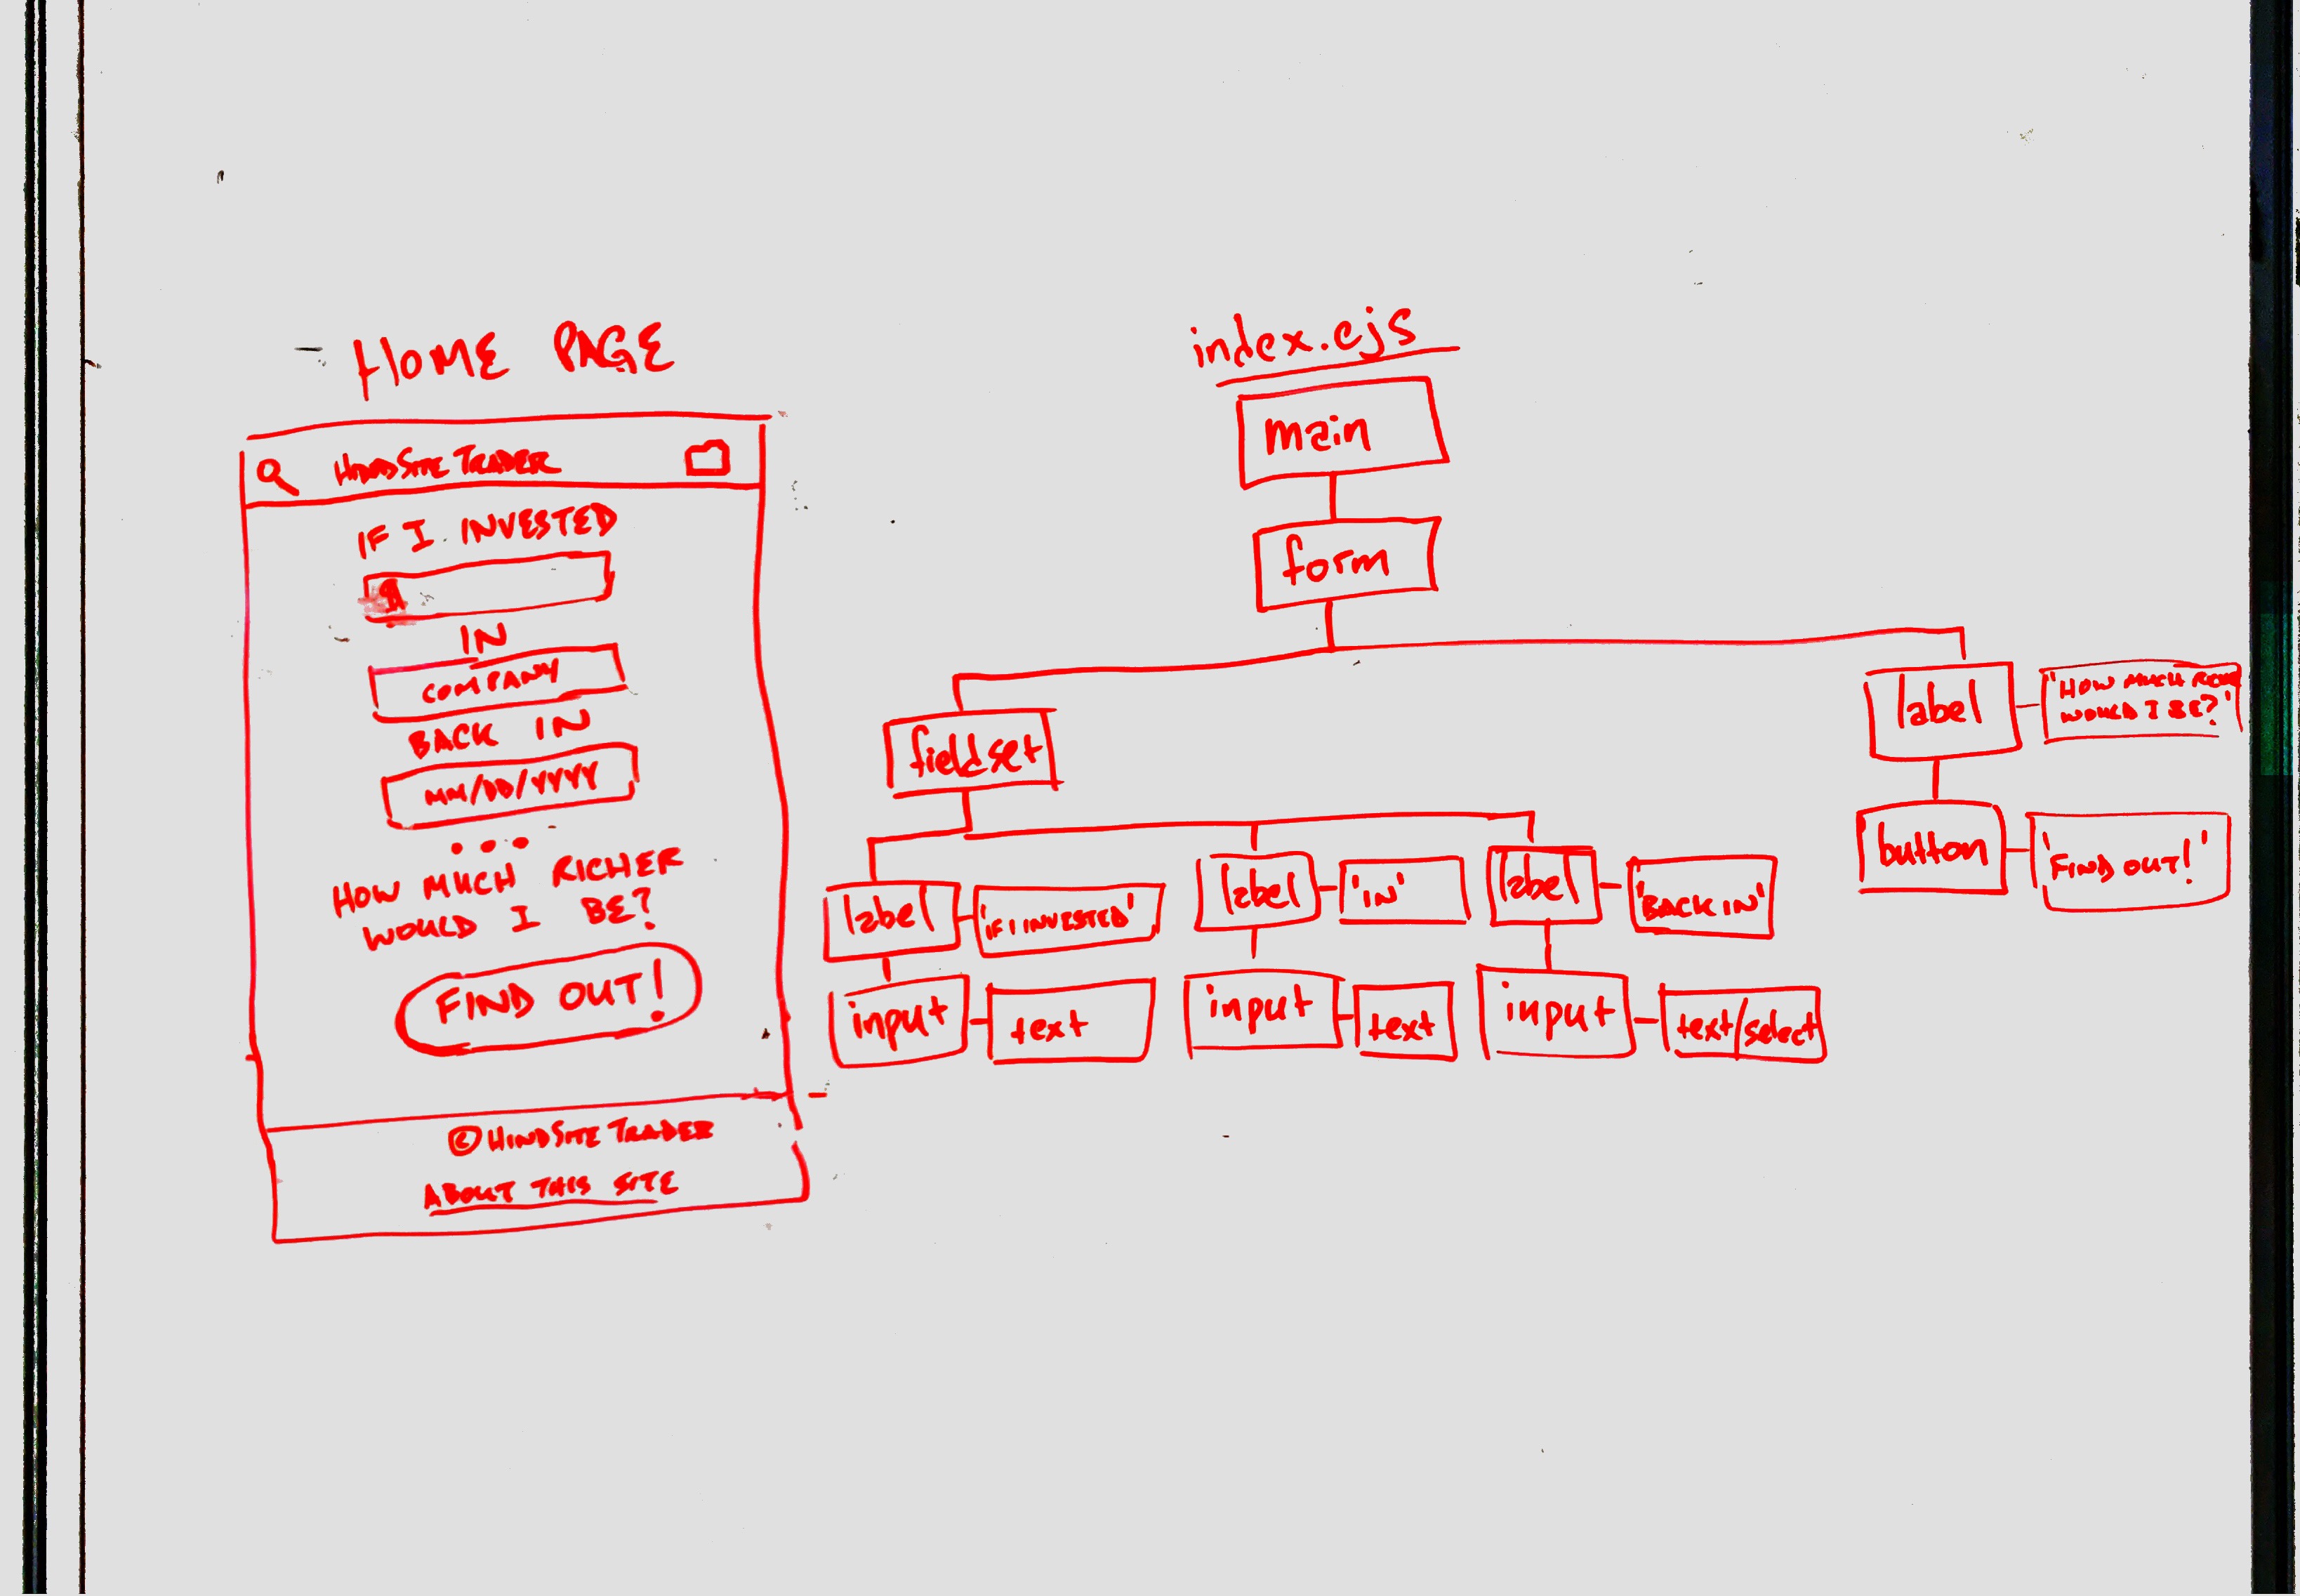 HOME PAGE
HINDSITE TRADER
IF I INVESTED
$
IN
COMPANY
BACK IN
MM/DD/YYYY
...
HOW MUCH RICHER
WOULD I BE?
FIND OUT!
© HINDSITE TRADER
ABOUT THIS SITE
index.ejs
main
form
fieldset
label 'IF I INVESTED'
input text
label 'IN'
input text
label 'BACK IN'
input text/select
label 'HOW MUCH
WOULD I BE?'
button 'FIND OUT!'